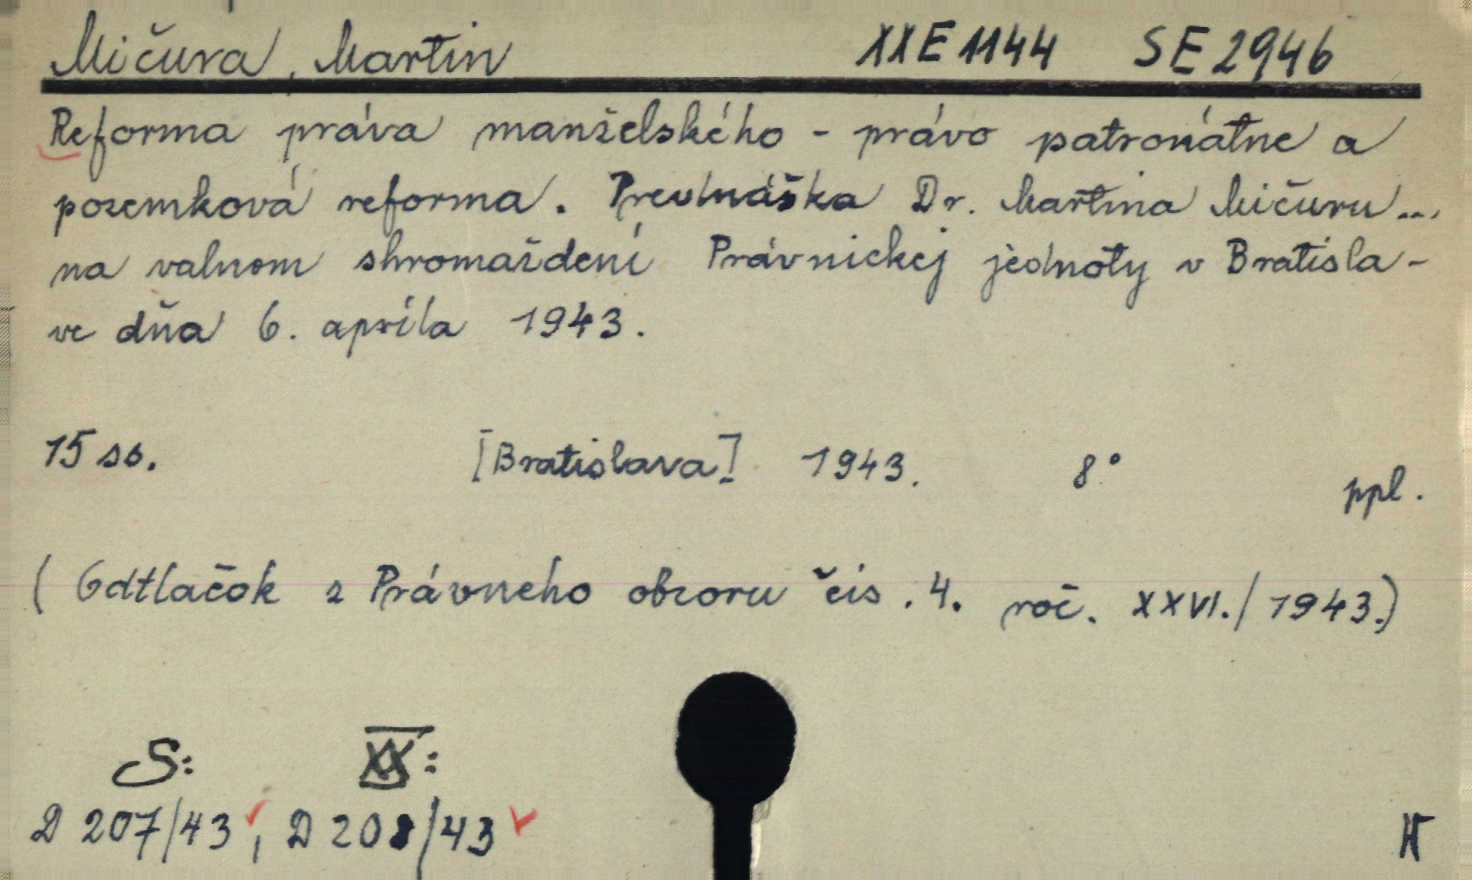 Mičura, Martin XXE1144 SE2946
Reforma práva manželského - právo patronátne a
pozemková reforma. Prednáška Dr. Martina Mičuru...,
na valnom shromaždení Právnickej jednoty v Bratisla-
ve dňa 6. apríla 1943.
15 ss. [Bratislava] 1943. 8° ppl.
(Odtlačok z Právneho obzoru čís. 4. roč. XXVI./1943.)
S: XX:
D 207/43, D 208/43